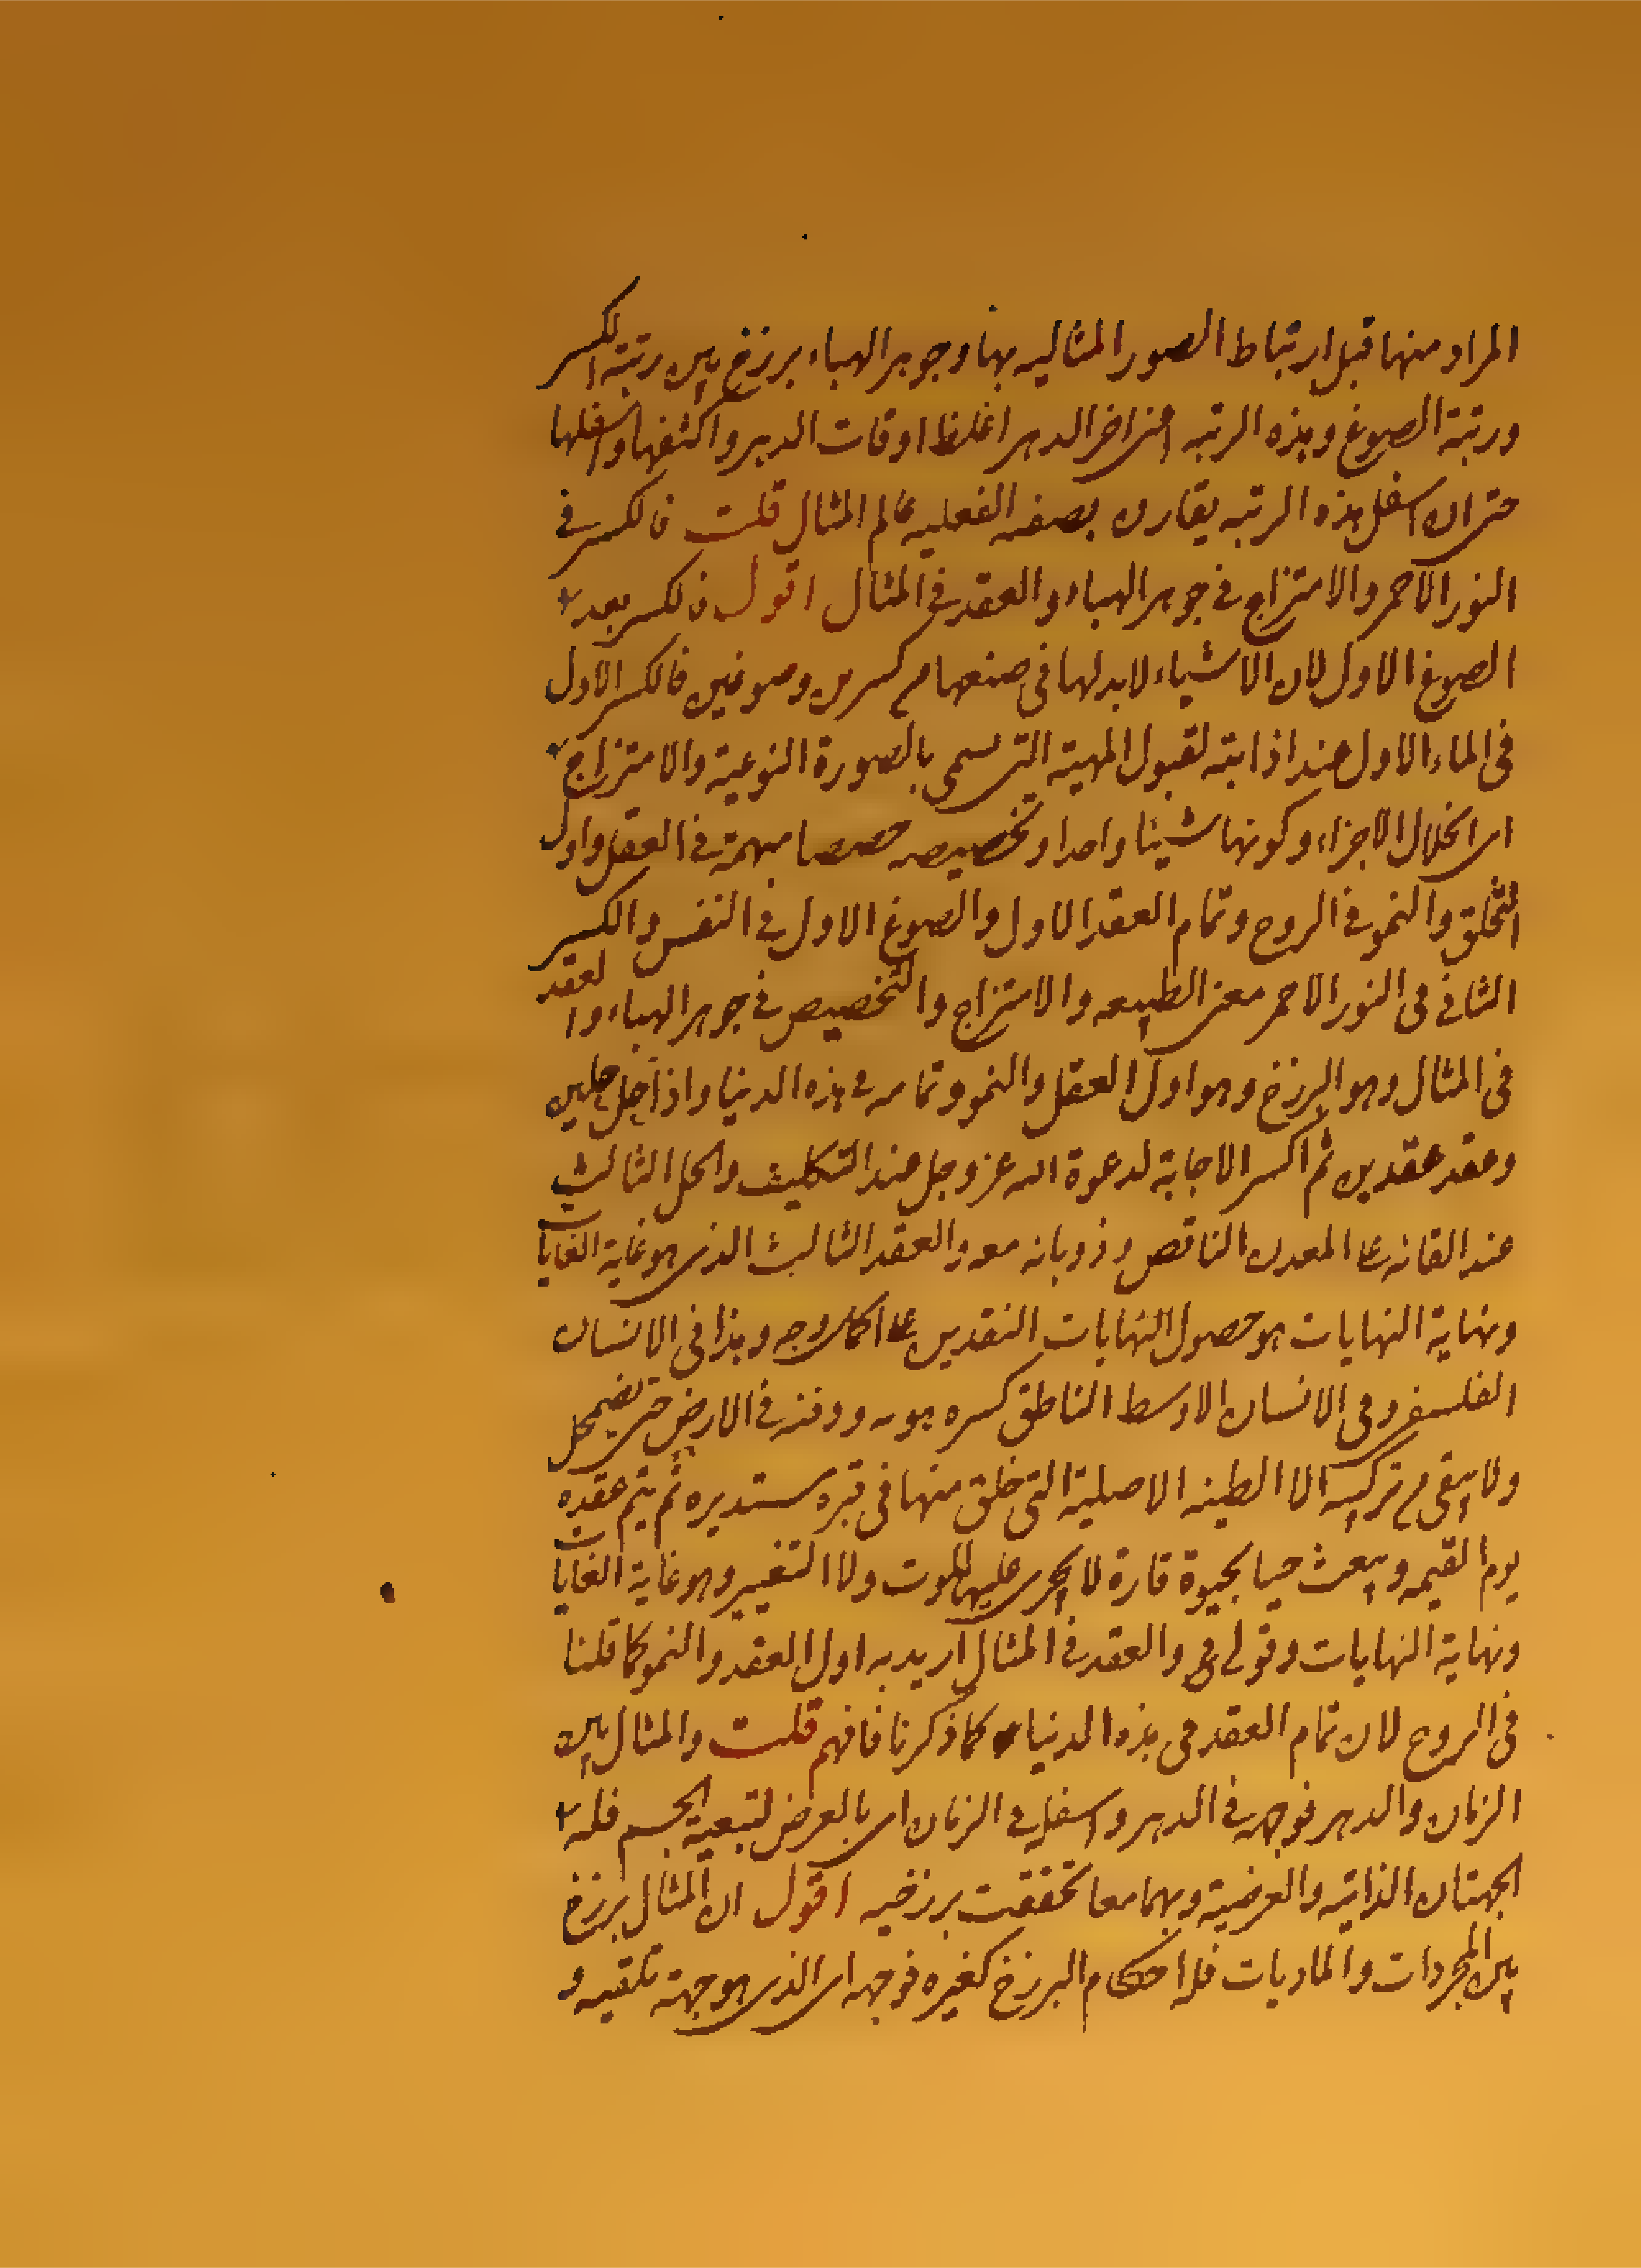 المراد منها قبل ارتباط الصور المثاليه بها وجوهر الهباء برزخ بين رتبة الكسر
ورتبة الصوغ وهذه الرتبه اخر الدهر اغلظ اوقات الدهر واكثفها واسفلها
حتى ان اسفل هذه الرتبه يقارن بصفه الفعليه عالم المثال قلت فالكسر في
النور الاحمر والامتزاج في جوهر الهباء والعقد في المثال اقول فالكسر بعد
الصوغ الاول لان الاشياء لابد لها في صنعها من كسرين وصوغين فالكسر الاول
في الماء الاول عند اذابته لقبول المهية التي تسمى بالصورة النوعية والامتزاج
اي انحلال الاجزاء وكونها شيئا واحدا وتخصيصه حصصا مبهمة في العقل واول
التخلق والنمو في الروح وتمام العقد الاول والصوغ الاول في النفس والكسر
الثاني في النور الاحمر معنى الطبيعه والامتزاج والتخصيص في جوهر الهباء والعقد
في المثال وهو البرزخ وهو اول العقل والنمو وتمامه في هذه الدنيا واذا حل حلين
وعقد عقدين ثم اكسر الاجابة لدعوة الله عز وجل عند التكليف والحل الثالث
عند القائه على المعدن الناقص وذوبانه معه والعقد الثالث الذي هو غاية الغايات
ونهاية النهايات هو حصول النهايات النقدين على اكمل وجه وهذا في الانسان
الفلسفي وفي الانسان الاوسط الناطق كسره موته ودفنه في الارض حتى يضمحل
ولا يبقى من تركيبه الا الطينه الاصلية التي خلق منها في قبره مستديره ثم يتم عقده
يوم القيمه ويبعث حيا بحيوة قارة لا يجري عليها الموت ولا التغيير وهو غاية الغايات
ونهاية النهايات وقولي والعقد في المثال اريد به اول العقد والنمو كما قلنا
في الروح لان تمام العقد في هذه الدنيا كما ذكرنا فافهم قلت والمثال بين
الزمان والدهر فوجهه في الدهر واسفله في الزمان اي بالعرض لتبعية الجسم فله
الجهتان الذاتيه والعرضية وبهما معا تحققت برزخيه اقول ان المثال برزخ
بين المجردات والماديات فله احكام البرزخ كغيره فوجهه اي الذي هو جهة تلقيه و